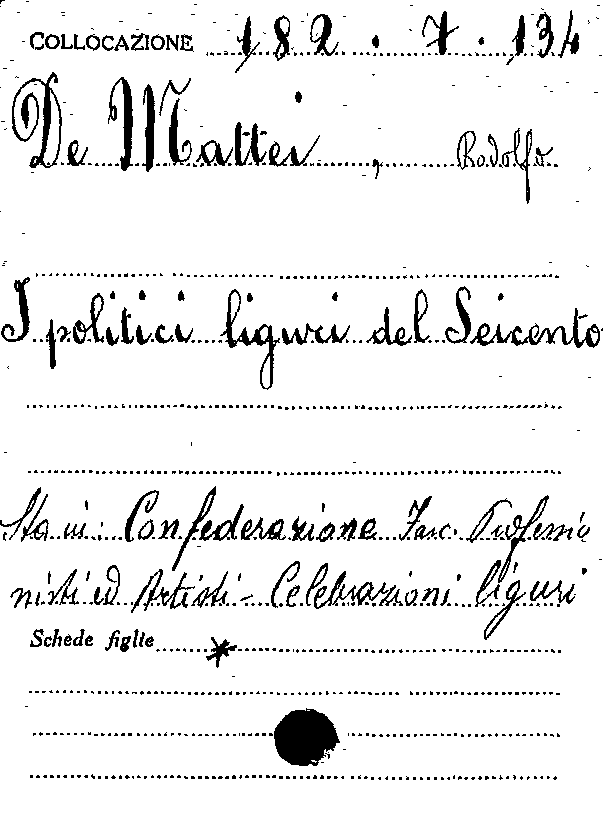 COLLOCAZIONE 182.7.134
De Mattei, Rodolfo
I politici liguri del Seicento
Sta in: Confederazione Fasc. Professio
nisti ed Artisti - Celebrazioni liguri
Schede figlie *